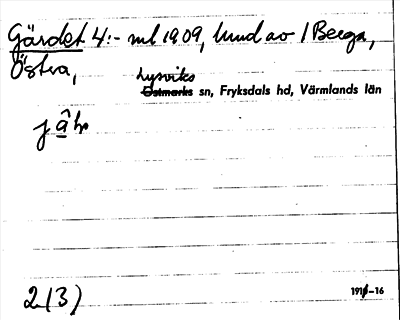 Gärdet 4:- ml 1909, lund av 1 Berga,
Östra,
Lysviks
Östmarks sn, Fryksdals hd, Värmlands län
2(3)
191 -16